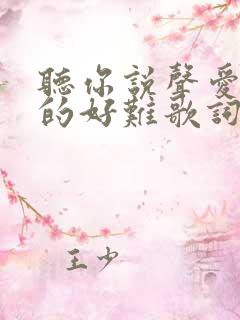 聽你說聲愛
的好難歌詞
王少